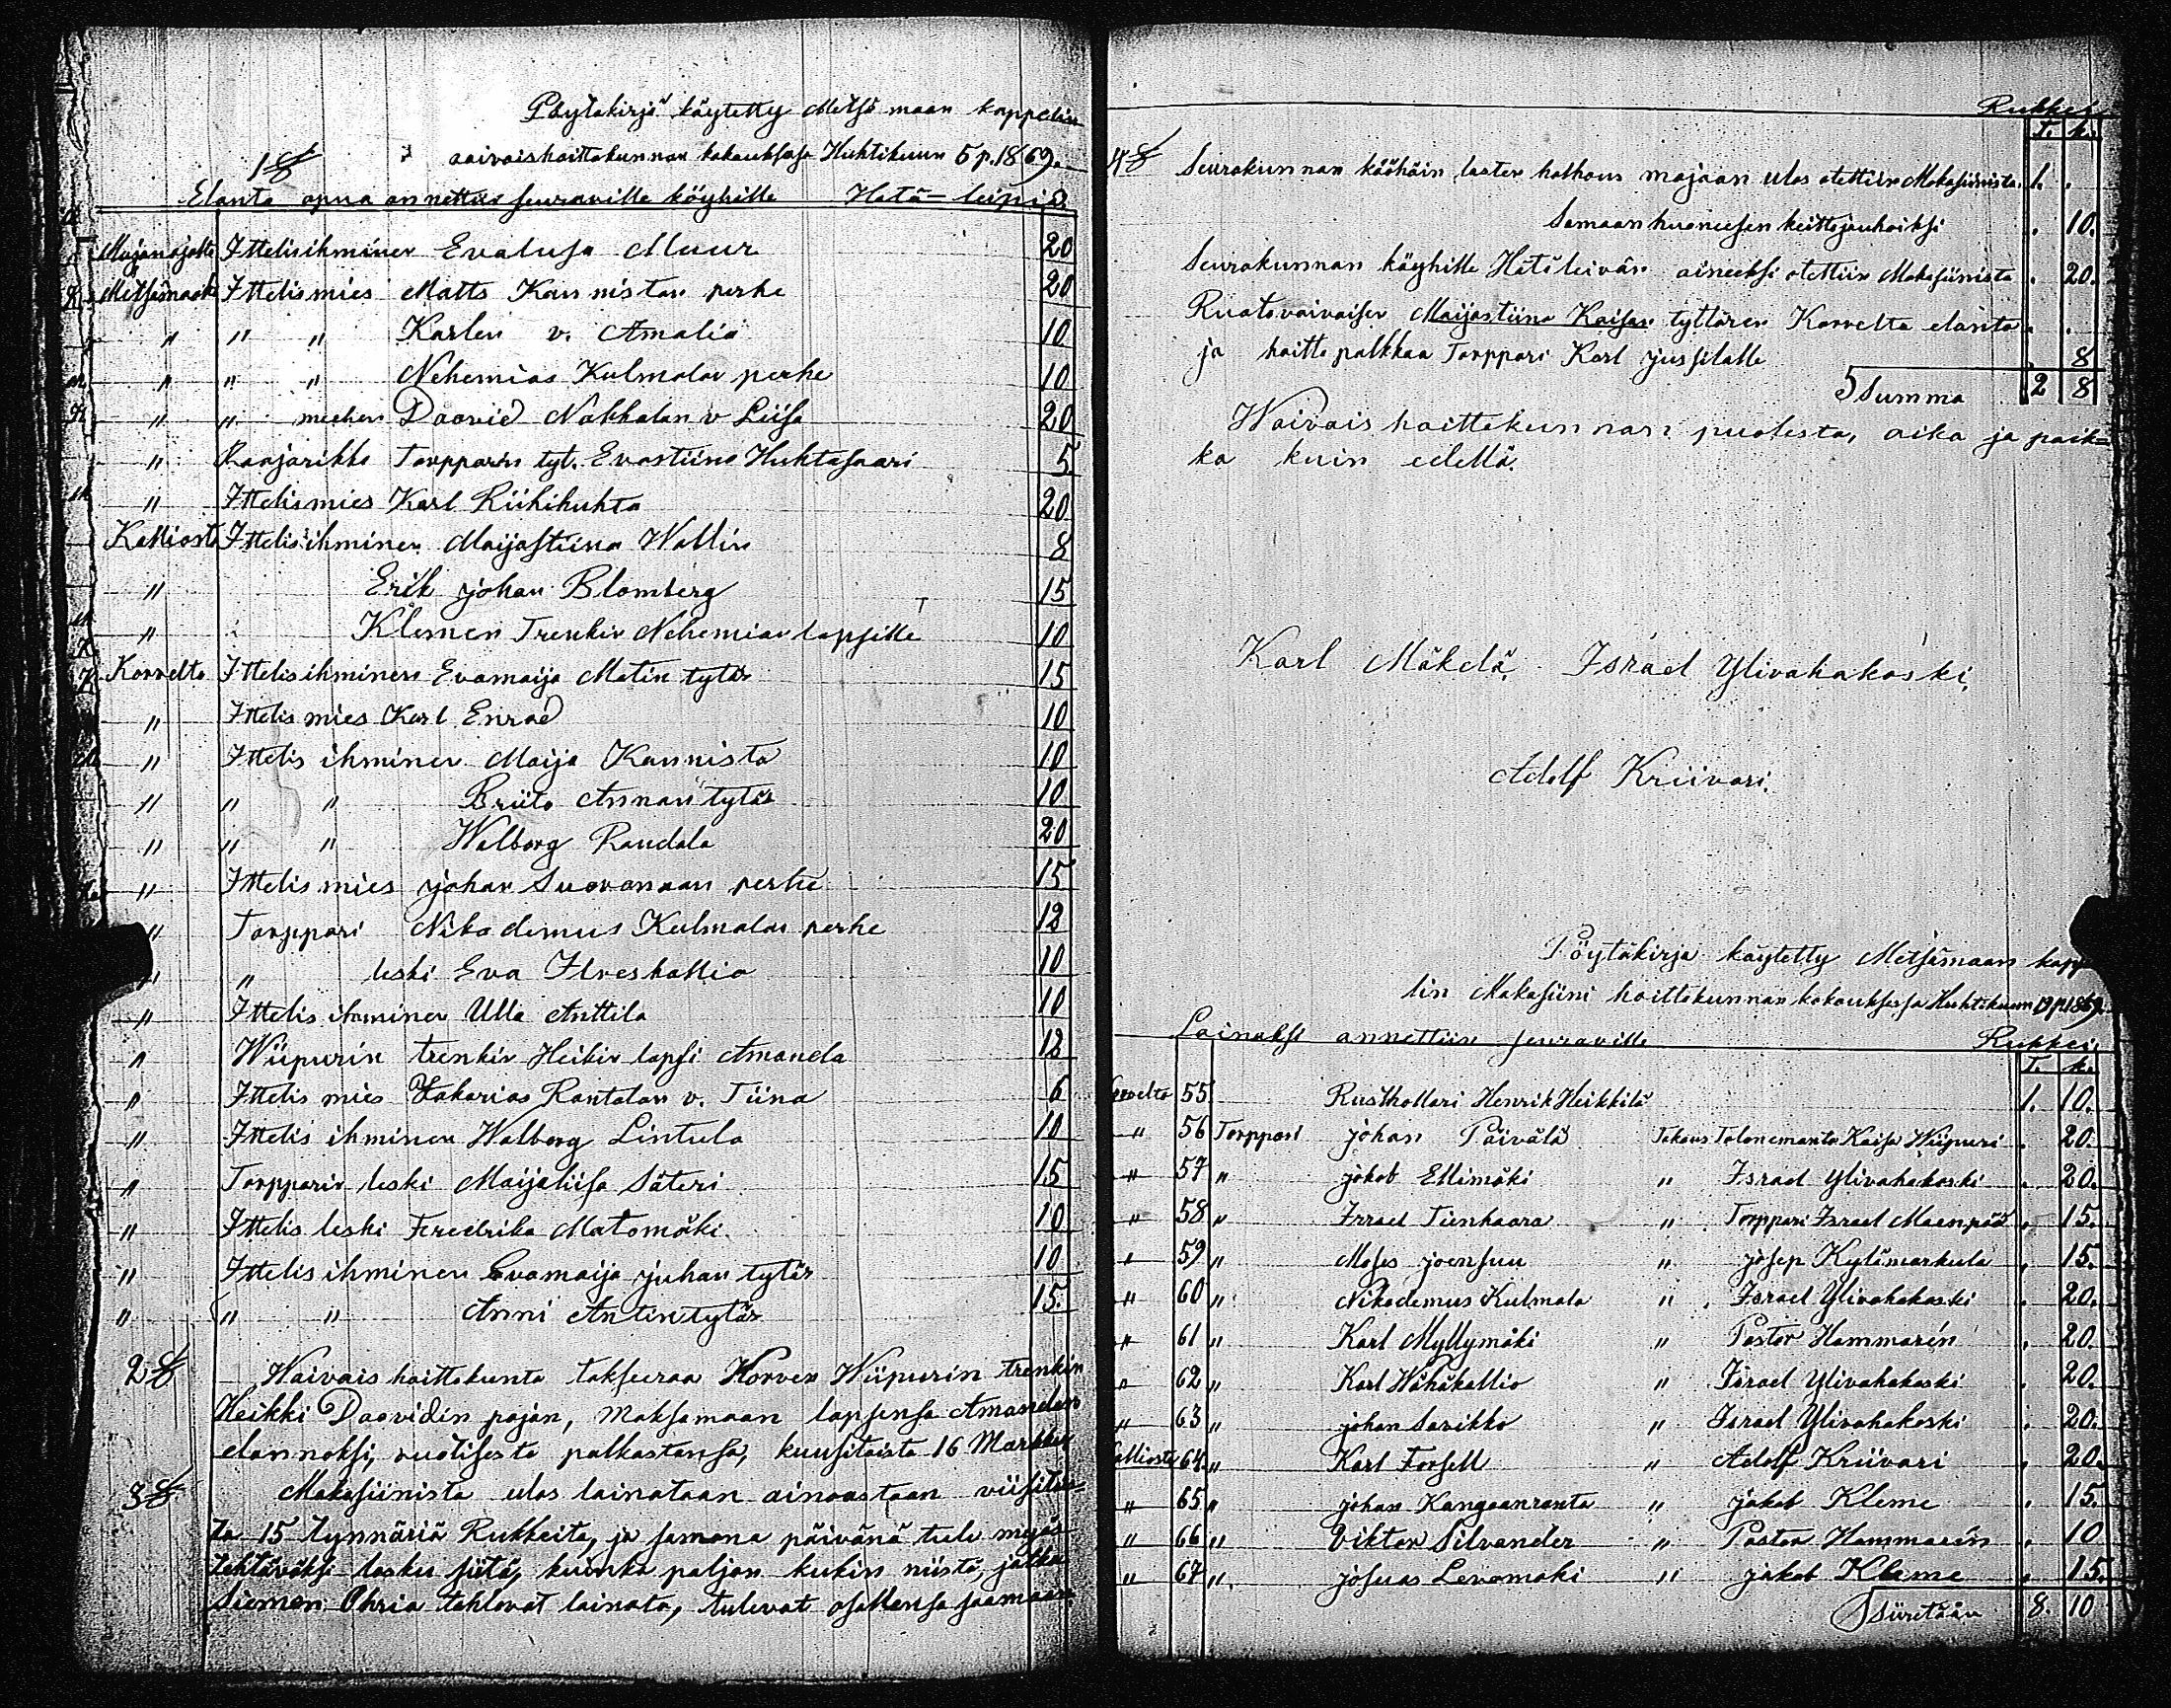 Pöytäkirja käytetty Metsä maan kappelin
vaivaishoittokunnan kokouksesa Huhtikuun 5 p. 1869.
1 §
Elanto apua annettiin seuraville köyhille Hätä=leipiä.
Majanojalta Ittelisihminen Evalusa Muur 20
Metsämaalta Ittelismies Matts Kannistan perhe 20
" " " Karlen v. Amalia 10
" " " Nehemias Kulmalan perhe 10
" " miehen Daavid Nakkalan v Liisa 20
" Raajarikko Torpparin tyt. Evastiina Huhtasaari 5
" Ittelismies Karl Riihihuhta 20
Kalliosta Ittelis ihminen Maijastiina Wallin 8
" Erik johan Blomberg 15
" Klemen Trenkin Nehemian lapsille 10
Korvelta Ittelisihminen Evamaija Matin tytär 15
" Ittelis mies Karl Enrad 10
" Ittelis ihminen Maija Kannisto 10
" " " Briita Annan tytär 10
" " " Walborg Randala 20
" Ittelis mies johan Suovanaan perhe 15
" Torppari Nikodemus Kulmalan perhe 12
" " leski Eva Ilveskallio 10
" Ittelis ihminen Ulla Anttila 10
" Wiipurin trenkin Heikin lapsi Amanda 12
" Ittelis mies Zakarias Rantalan v. Tiina 6
" Ittelis ihminen Walborg Lintula 10
" Torpparin leski Maijaliisa Säteri 15
" Ittelis leski Fredrika Matomäki 10
" Ittelis ihminen Evamaija juhan tytär 10
" " " Anni Antintytär 15.
2 § Waivais hoittokunta takseeraa Korven Wiipurin trenkin
Heikki Daavidin pojan, maksamaan lapsensa Amandan
elannoksi, vuotisesta palkastansa, kuusitoista 16 Markkaa
3 § Makasiinista ulos lainataan ainoastaan viisitois=
ta 15 tynnäriä Rukkeita, ja samana päivänä tule myös
tehtäväksi lasku siitä, kuinka paljon kukin niistä, jotka
Siemen Ohria tahtovat lainata, tulevat osallensa saamaan.
Rukkei
T. k.
4 § Seurakunnan lasten hoihous majaan ulos otettiin Makasiinista 1. .
Samaan huoneesen keittojauhoiksi . 10.
Seurakunnan köyhille Hätäleivän aineeksi otettiin Makasiinista . 20.
Ruotovaivaisen Maijastiina Kaisan tyttären Korvelta elanto . .
ja hoitto palkkaa Torppari Karl jussilalle . 8
Summa 2 8
Waivais hoittokunnan puolesta, aika ja paik=
ka kuin edellä.
Karl Mäkelä. Israel Ylivahakoski.
Adolf Kriivari.
Pöytäkirja käytetty Metsämaan kappe
lin Makasiini hoittokunnan kokouksessa Huhtikuun p. 1869.
Lainaksi annettiin seuraville Rukkei.
T. k.
Korvelta 55 Rusthollari Henrik Heikkilä 1. 10.
" 56 Torppari johan Päivälä Takaus Talonemäntä Kaisa Wiipuri . 20.
" 57 " jakob Ellimäki " Israel Ylivahakoski . 20.
" 58 " Israel Tienhaara " Torppari Israel Maenpää . 15.
" 59 " Moses joensuu " josep Kylämarkula . 15.
" 60 " Nikodemus Kulmala " Israel Ylivahakoski . 20.
" 61 " Karl Myllymäki " Pastor Hammarén . 20.
" 62 " Karl Wähäkallio " Israel Ylivahakoski . 20.
" 63 " johan Savikko " Israel Ylivahakoski . 20.
Kalliosta 64. " Karl Forsell " Adolf Kriivari . 20.
" 65 " johan Kangaanranta " jakob Kleme . 15.
" 66 " Viktor Silvander " Pastor Hammarén . 10
" 67 " josuas Levomäki " jakob Kleme . 15.
Siiretään 8. 10